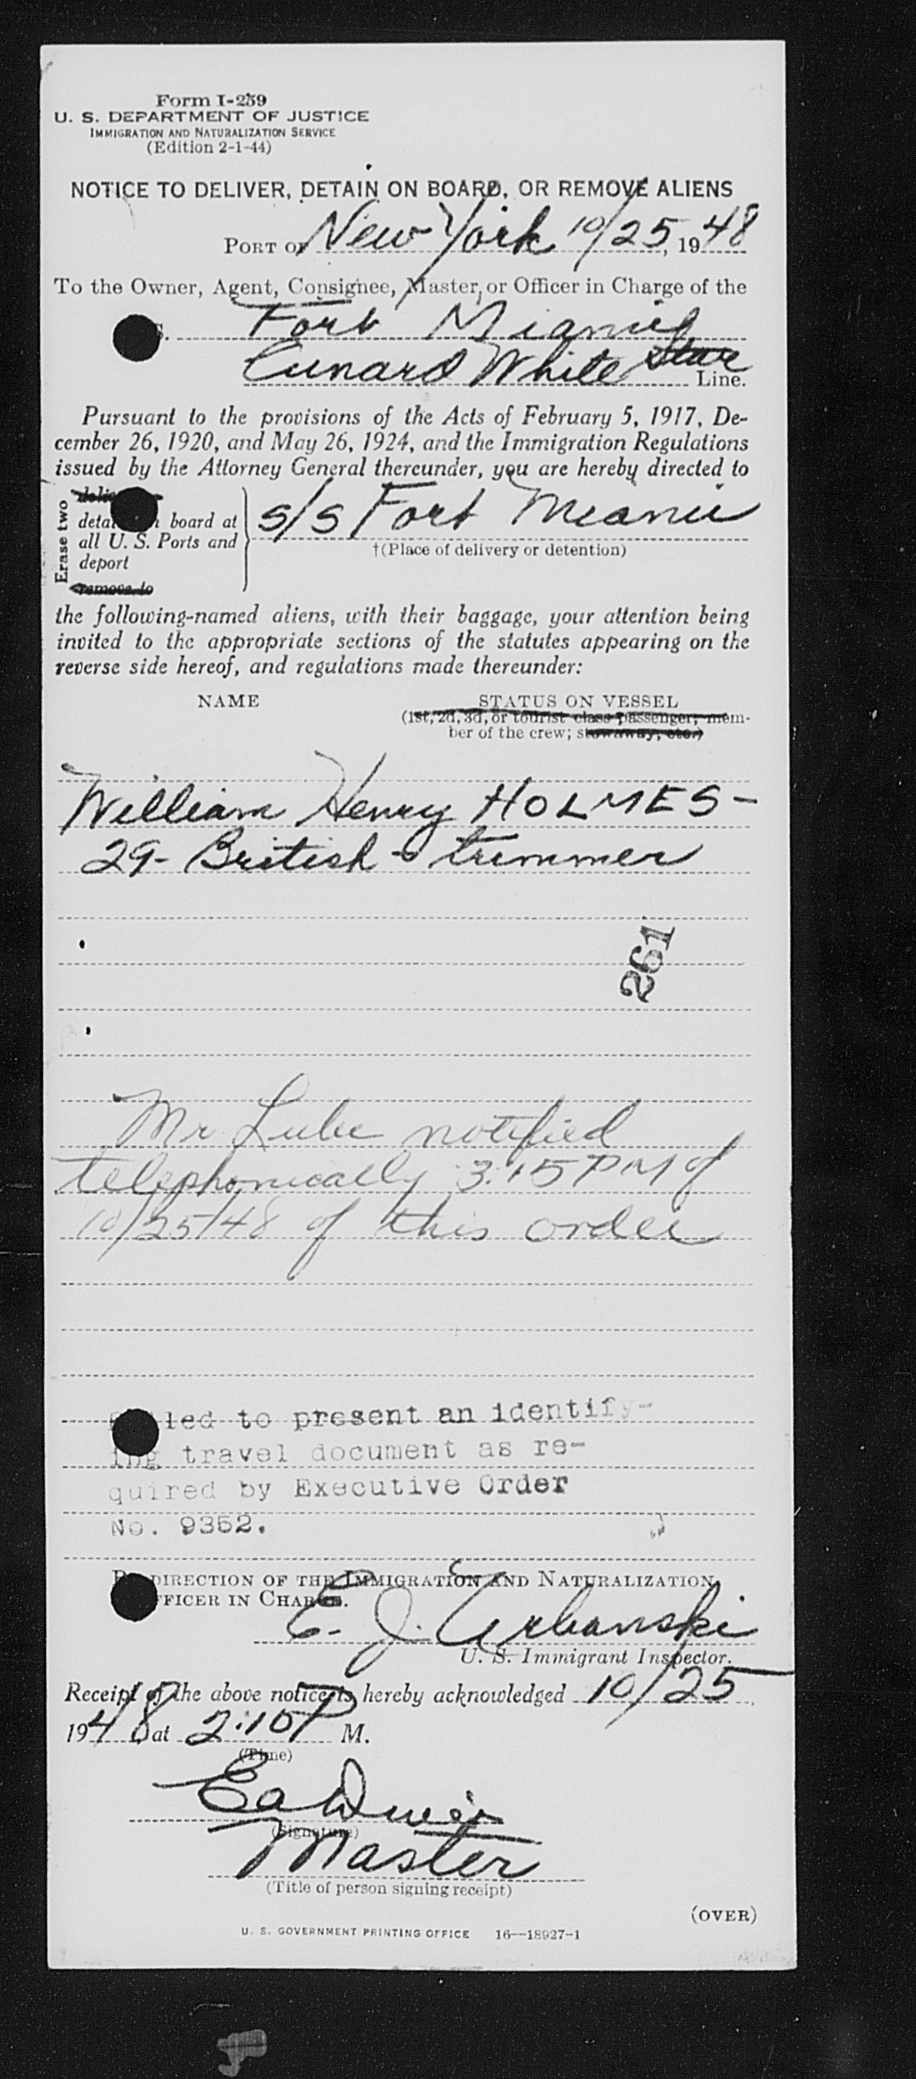 Form I-259
U. S. DEPARTMENT OF JUSTICE
IMMIGRATION AND NATURALIZATION SERVICE
(Edition 2-1-44)
NOTICE TO DELIVER, DETAIN ON BOARD, OR REMOVE ALIENS
PORT OF New York 10/25, 1948
To the Owner, Agent, Consignee, Master, or Officer in Charge of the
Fort
Cunard White Star Line.
Pursuant to the provisions of the Acts of February 5, 1917, De-
cember 26, 1920, and May 26, 1924, and the Immigration Regulations
issued by the Attorney General thereunder, you are hereby directed to
Erase two
board at
all U. S. Ports and
deport
remove to
s/s Fort
†(Place of delivery or detention)
the following-named aliens, with their baggage, your attention being
invited to the appropriate sections of the statutes appearing on the
reverse side hereof, and regulations made thereunder:
NAME STATUS ON VESSEL
(1st, 2d, 3d, or tourist class passenger; mem-
ber of the crew; stowaway, etc.)
William Henry HOLMES -
29 - British - trimmer
261
Mr notified
telephonically 3:15 PM of
10/25/48 of this order
led to present an identify-
ing travel document as re-
quired by Executive Order
No. 9352.
DIRECTION OF THE IMMIGRATION AND NATURALIZATION
FFICER IN CHARGE.
E. J. Urbanski
U. S. Immigrant Inspector.
Receipt of the above notice is hereby acknowledged 10/25,
1948, at 2:10 P M.
(Time)
(Signature)
Master
(Title of person signing receipt)
(OVER)
U. S. GOVERNMENT PRINTING OFFICE 16—18927-1